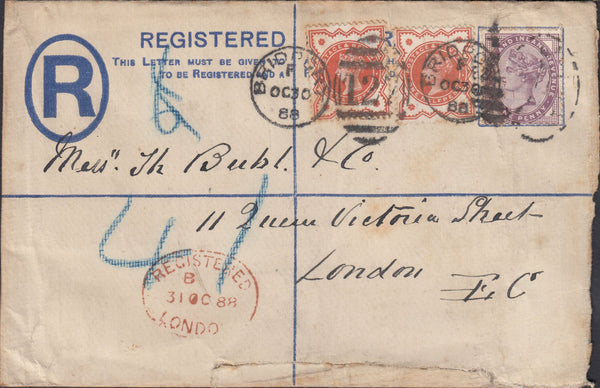 REGISTERED
THIS LETTER MUST BE GIVEN
TO BE REGISTERED
R
BRIDPORT
OC 30
88
12
BRIDPORT
OC 30
88
PENNY
Mess<sup>rs</sup> Th Buhl & Co.
11 Queen Victoria Street
London
E C
41
REGISTERED
B
31 OC 88
LONDON